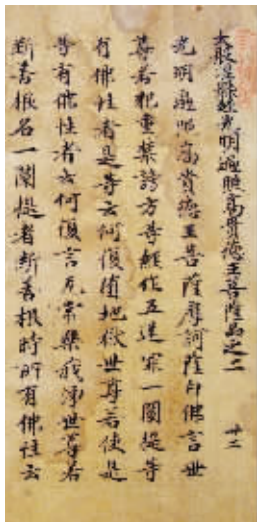 大般涅槃經光明遍照高貴德王菩薩品之二 廿二
光明遍照高貴德王菩薩摩訶薩白佛言世
尊若犯重禁謗方等經作五逆罪一闡提等
有佛性者是等云何復墮地獄世尊若使是
等有佛性者云何復言无常樂我淨世尊若
断善根名一闡提者断善根時所有佛性云